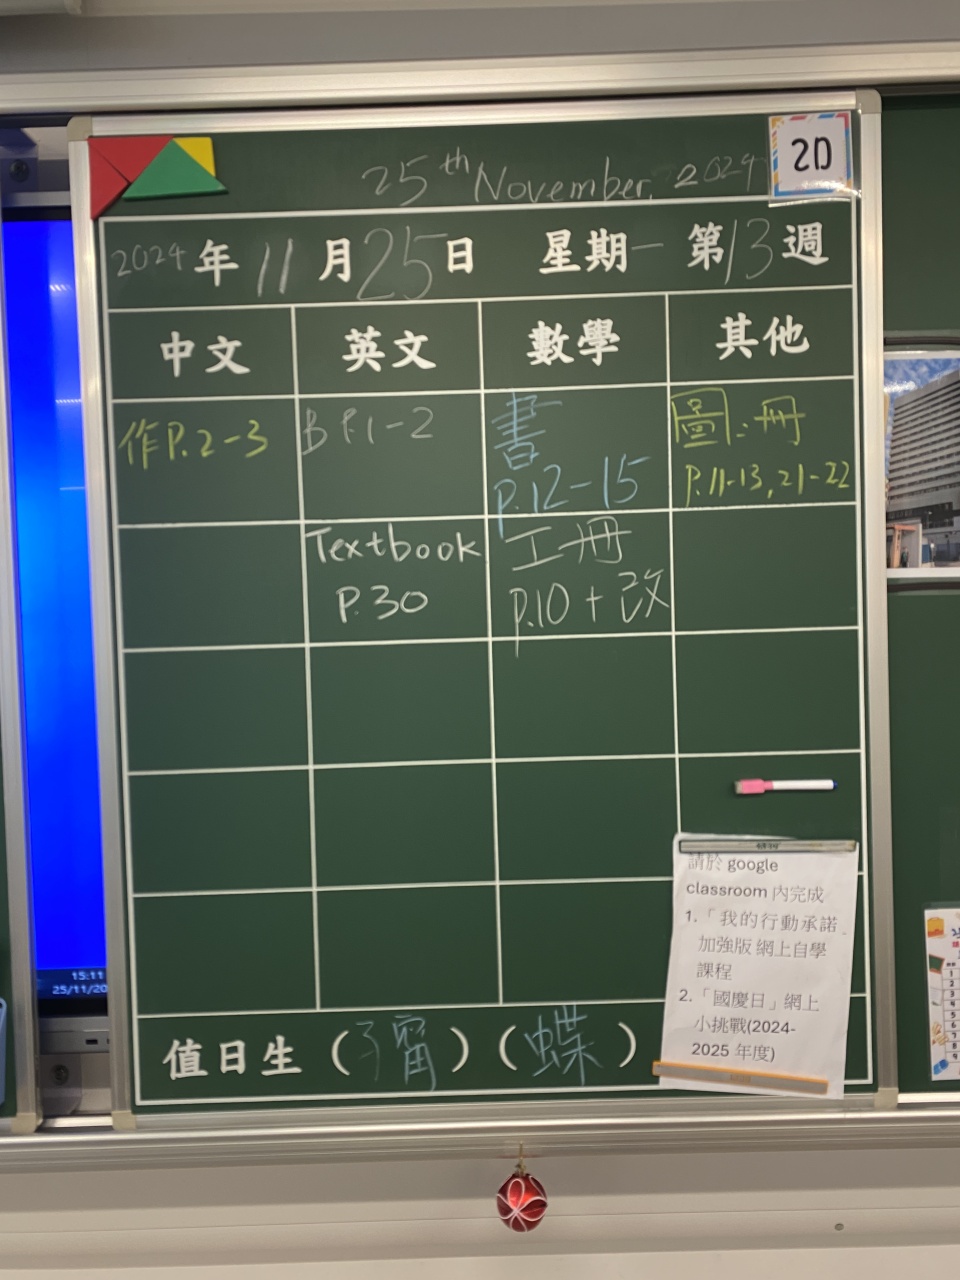 25th November, 2024
2D
2024年11月25日 星期一 第13週
中文 英文 數學 其他
作P.2-3
B P.1-2
書
P.12-15
圖:冊
P.11-13, 21-22
Textbook
P.30
工冊
p.10 + 改
請於 google
classroom 內完成
1.「我的行動承諾
加強版 網上自學
課程
2.「國慶日」網上
小挑戰(2024-
2025 年度)
值日生 ( ) (蝶)
15:11
25/11/20